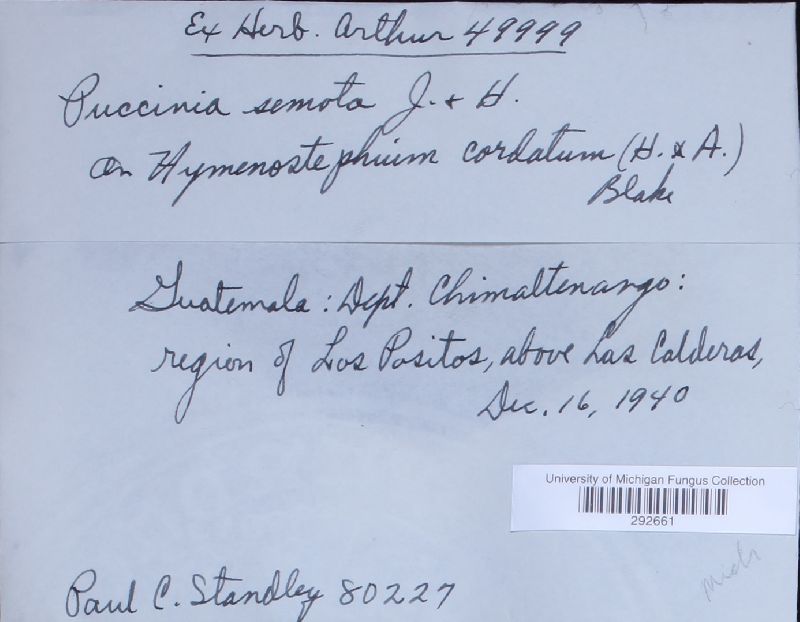 Ex Herb. Arthur 49999
Puccinia semota J. & H.
on Hymenostephium cordatum (H. & A.)
Blake
Guatemala: Dept. Chimaltenango:
region of Los Positos, above Las Calderas,
Dec. 16, 1940
University of Michigan Fungus Collection
292661
Mich
Paul C. Standley 80227